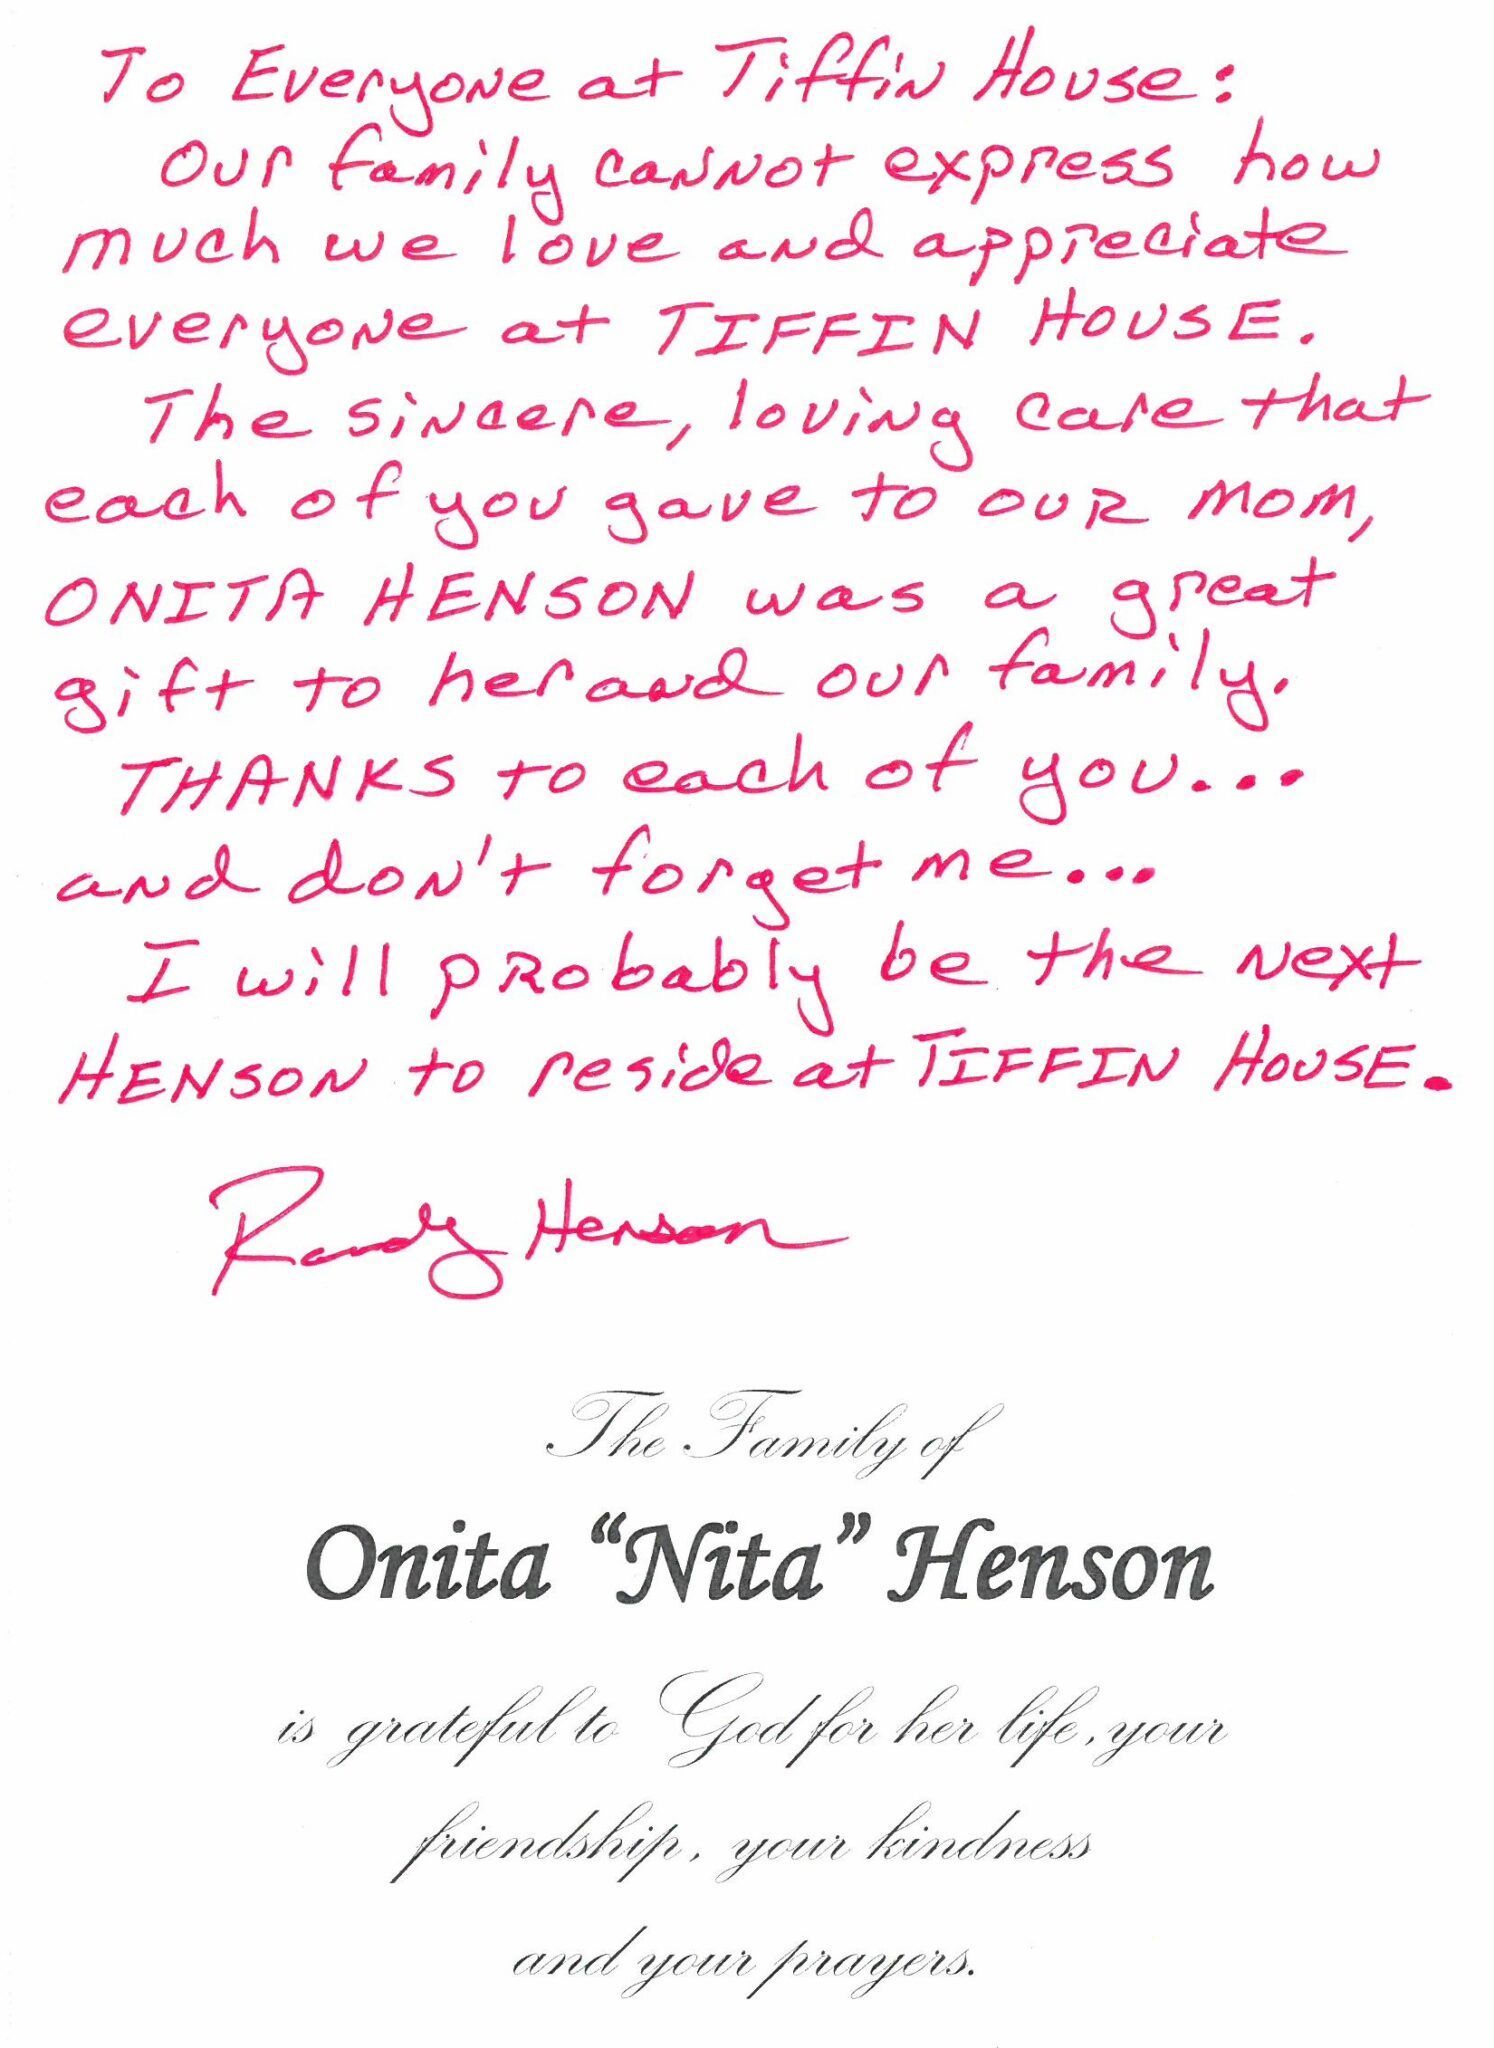 To Everyone at Tiffin House:
Our family cannot express how
much we love and appreciate
everyone at TIFFIN HOUSE.
The sincere, loving care that
each of you gave to OUR MOM,
ONITA HENSON was a great
gift to her and our family.
THANKS to each of you...
and don't forget me...
I will probably be the next
HENSON to reside at TIFFIN HOUSE.
Randy Henson
The Family of
Onita “Nita” Henson
is grateful to God for her life, your
friendship, your kindness
and your prayers.